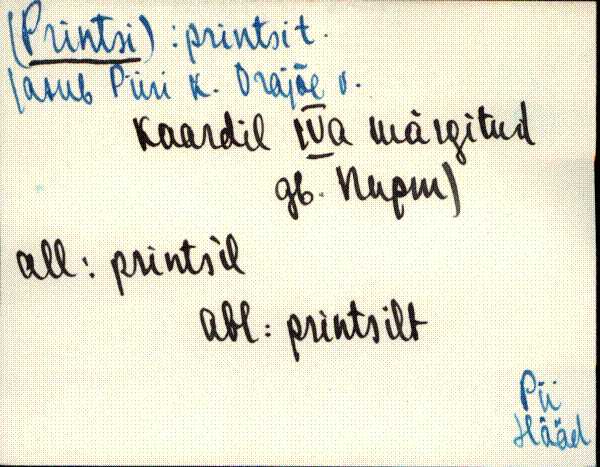 (Printsi) : printsit.
(asub Piiri k. Orajõe v.
Kaardil IVa märgitud
gb. Nupm)
all : prints̀il
abl : printsilt
Pii
Hääd